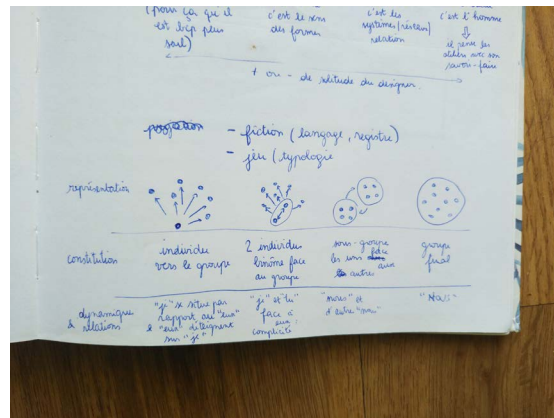 (pour ça que il
est bcp plus
seul)
c'est le sens
des formes
c'est les
systèmes/réseau
relation
c'est l'homme
il pense les
ateliers avec son
savoir-faire
+ ou - de solitude du designer.
- fiction (langage, registre)
- jeu (typologie
représentation
constitution
individu
vers le groupe
2 individus
binôme face
au groupe
sous-groupe
les uns face
aux
autres
groupe
final
dynamique
& relations
"je" se situe par
rapport au "eux"
& "eux" déteignent
sur "je"
"je" et "tu"
face à
eux :
complicité
"nous" et
d'autre "nous"
"Nous"